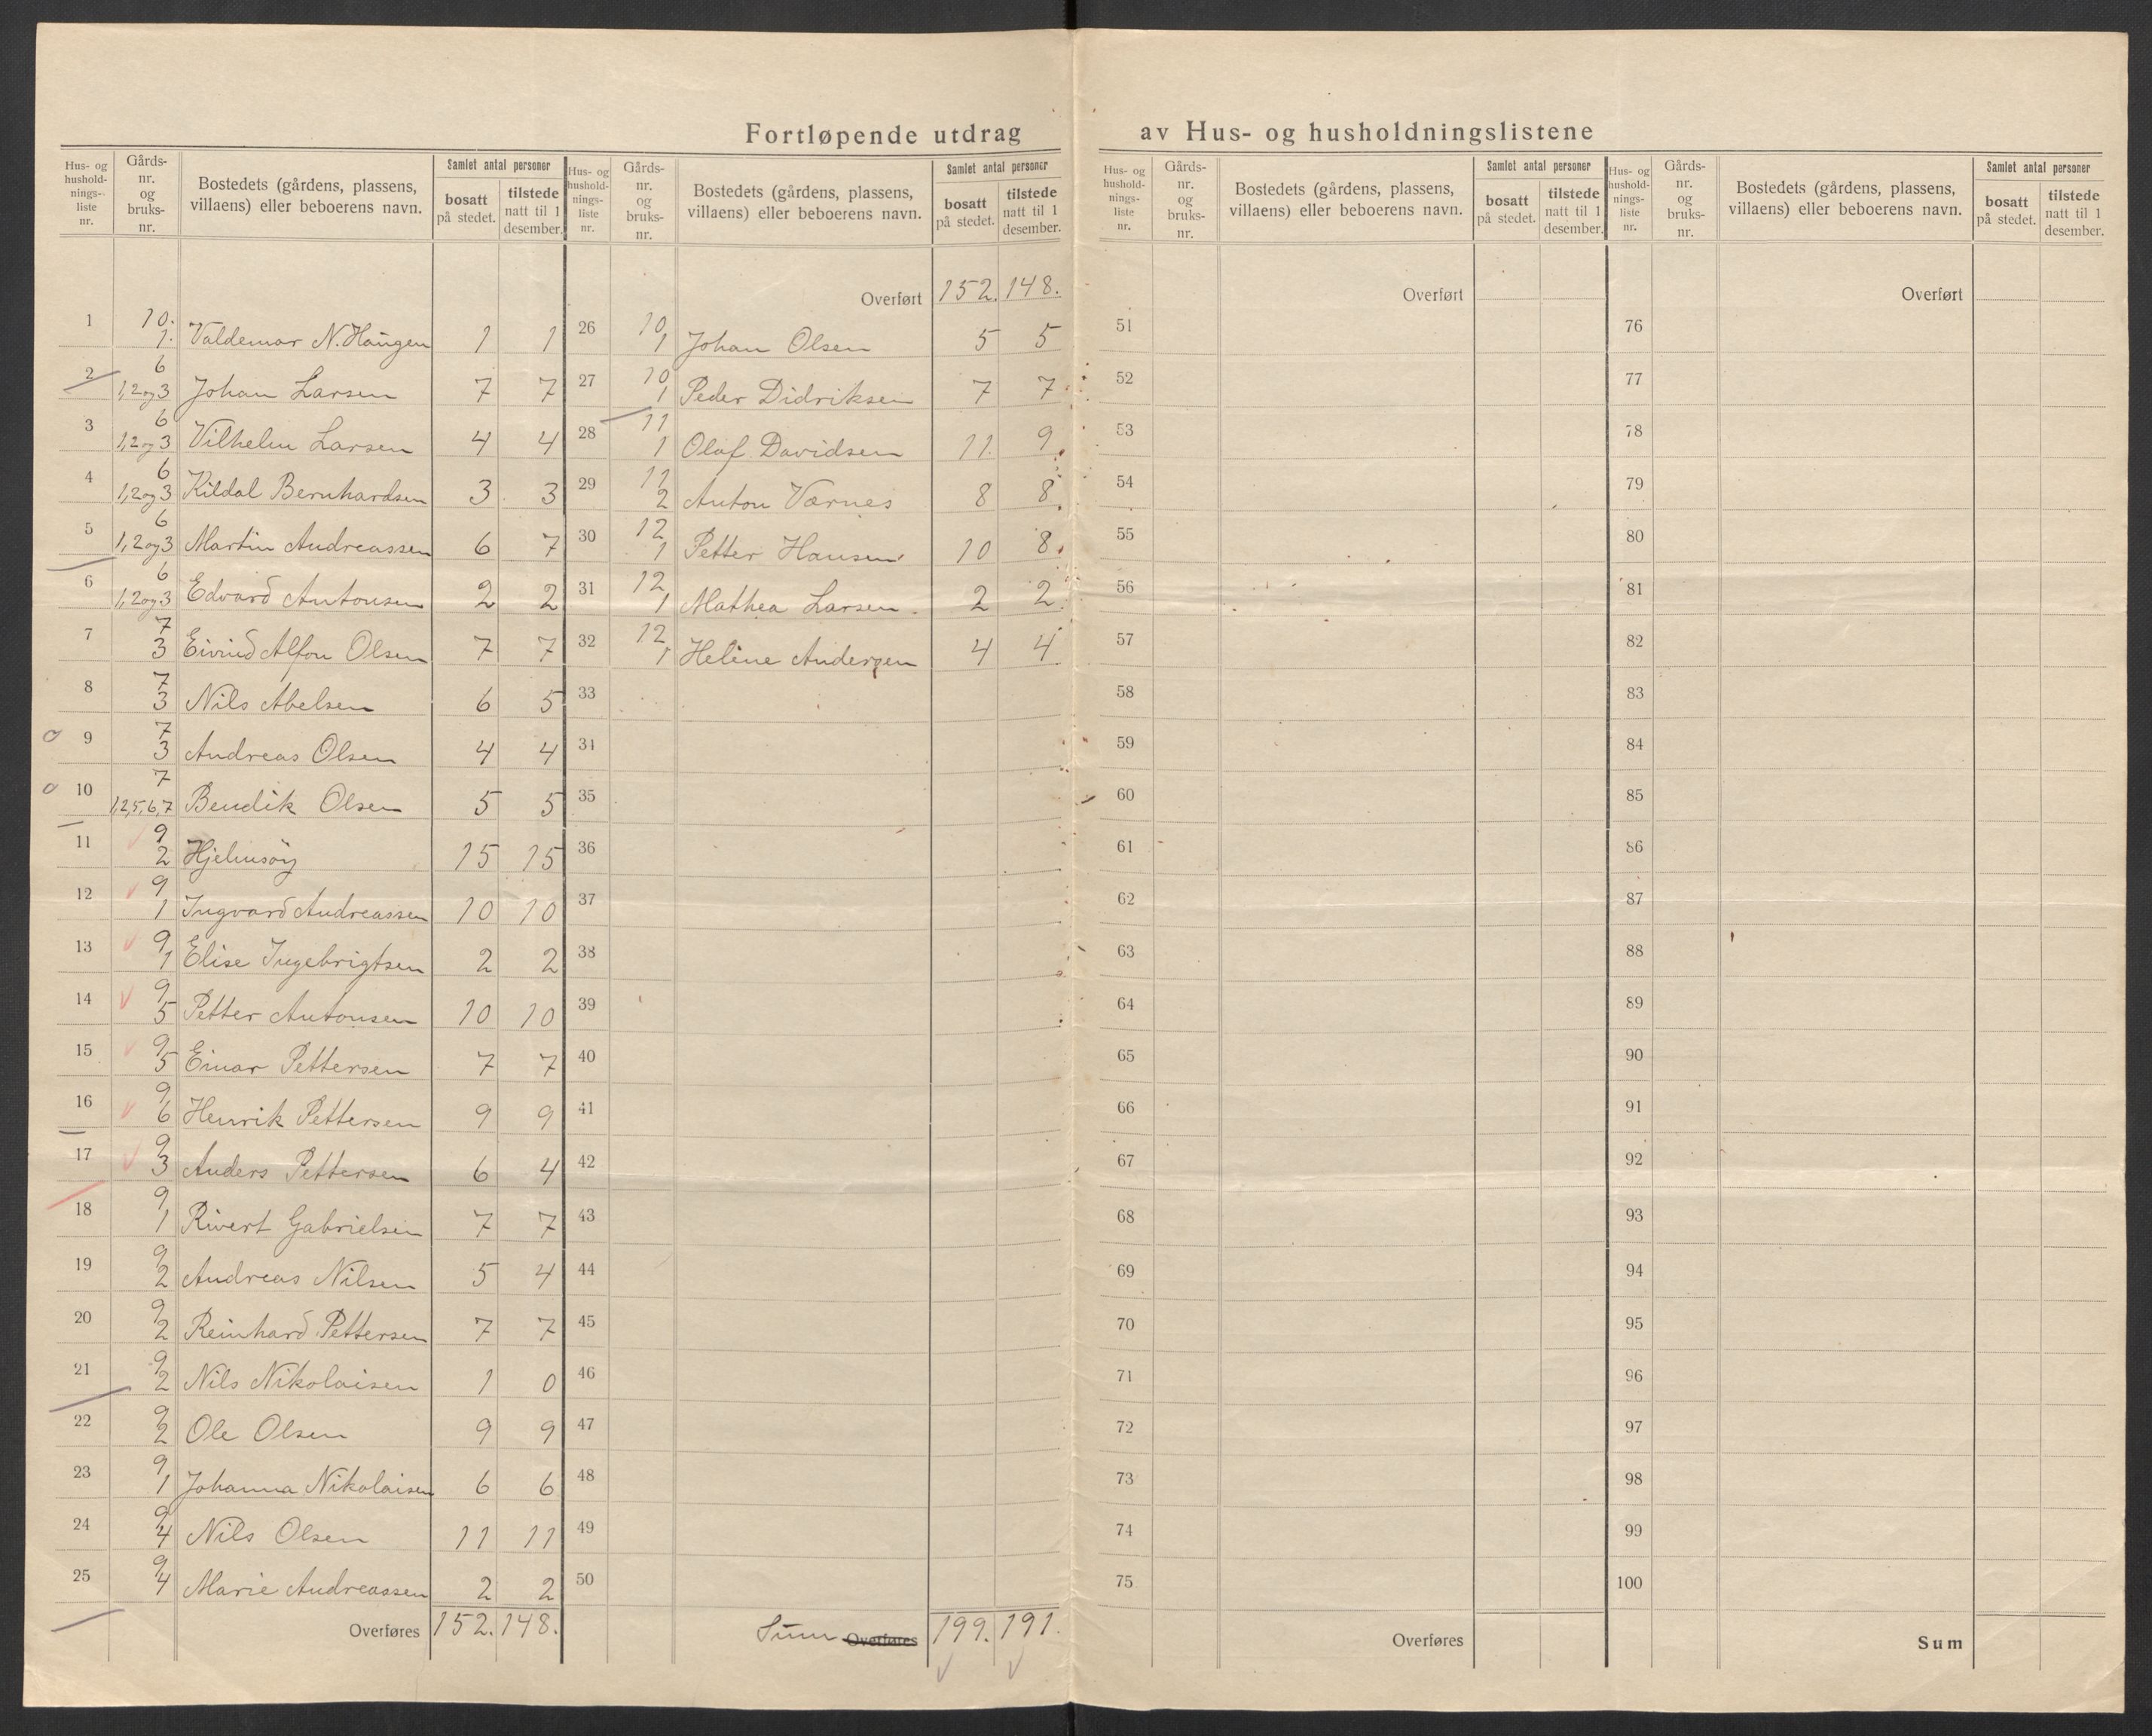 Fortløpende utdrag av Hus- og husholdningslistene
Hus- og hushold-nings-liste nr. | Gårds-nr. og bruks-nr. | Bostedets (gårdens, plassens, villaens) eller beboerens navn. | Samlet antal personer | bosatt på stedet. | tilstede natt til 1 desember.
1 10. 1. Valdemar N. Haugen 1 1
2 6 1,2og3 Johan Larsen 7 7
3 6 1,2og3 Vilhelm Larsen 4 4
4 6 1,2og3 Kildal Bernhardsen 3 3
5 6 1,2og3 Martin Andreassen 6 7
6 6 1,2og3 Edvard Antonsen 2 2
7 7 3 Eivind Alfon Olsen 7 7
8 7 3 Nils Abelsen 6 5
9 7 3 Andreas Olsen 4 4
10 7 1,2,5,6,7 Bendik Olsen 5 5
11 9 2 Hjelmsöy 15 15
12 9 1 Ingvard Andreassen 10 10
13 9 1 Elise Ingebrigtsen 2 2
14 9 5 Petter Antonsen 10 10
15 9 5 Einar Pettersen 7 7
16 9 6 Henrik Pettersen 9 9
17 9 3 Anders Pettersen 6 4
18 9 1 Rivert Gabrielsen 7 7
19 9 2 Andreas Nilsen 5 4
20 9 2 Reinhard Pettersen 7 7
21 9 2 Nils Nikolaisen 1 0
22 9 2 Ole Olsen 9 9
23 9 1 Johanna Nikolaisen 6 6
24 9 4 Nils Olsen 11 11
25 9 4 Marie Andreassen 2 2
Overføres 152. 148.
Hus- og hushold-nings-liste nr. | Gårds-nr. og bruks-nr. | Bostedets (gårdens, plassens, villaens) eller beboerens navn. | Samlet antal personer | bosatt på stedet. | tilstede natt til 1 desember.
Overført 152. 148.
26 10 1 Johan Olsen 5 5
27 10 1 Peder Didriksen 7 7
28 11 1 Olaf Davidsen 11 9
29 11 2 Anton Værnes 8 8
30 12 1 Petter Hansen 10 8
31 12 1 Mathea Larsen 2 2
32 12 1 Heline Andersen 4 4
33
34
35
36
37
38
39
40
41
42
43
44
45
46
47
48
49
50
Sum Overføres 199. 191.
Hus- og hushold-nings-liste nr. | Gårds-nr. og bruks-nr. | Bostedets (gårdens, plassens, villaens) eller beboerens navn. | Samlet antal personer | bosatt på stedet. | tilstede natt til 1 desember.
Overført
51
52
53
54
55
56
57
58
59
60
61
62
63
64
65
66
67
68
69
70
71
72
73
74
75
Overføres
Hus- og hushold-nings-liste nr. | Gårds-nr. og bruks-nr. | Bostedets (gårdens, plassens, villaens) eller beboerens navn. | Samlet antal personer | bosatt på stedet. | tilstede natt til 1 desember.
Overført
76
77
78
79
80
81
82
83
84
85
86
87
88
89
90
91
92
93
94
95
96
97
98
99
100
Sum